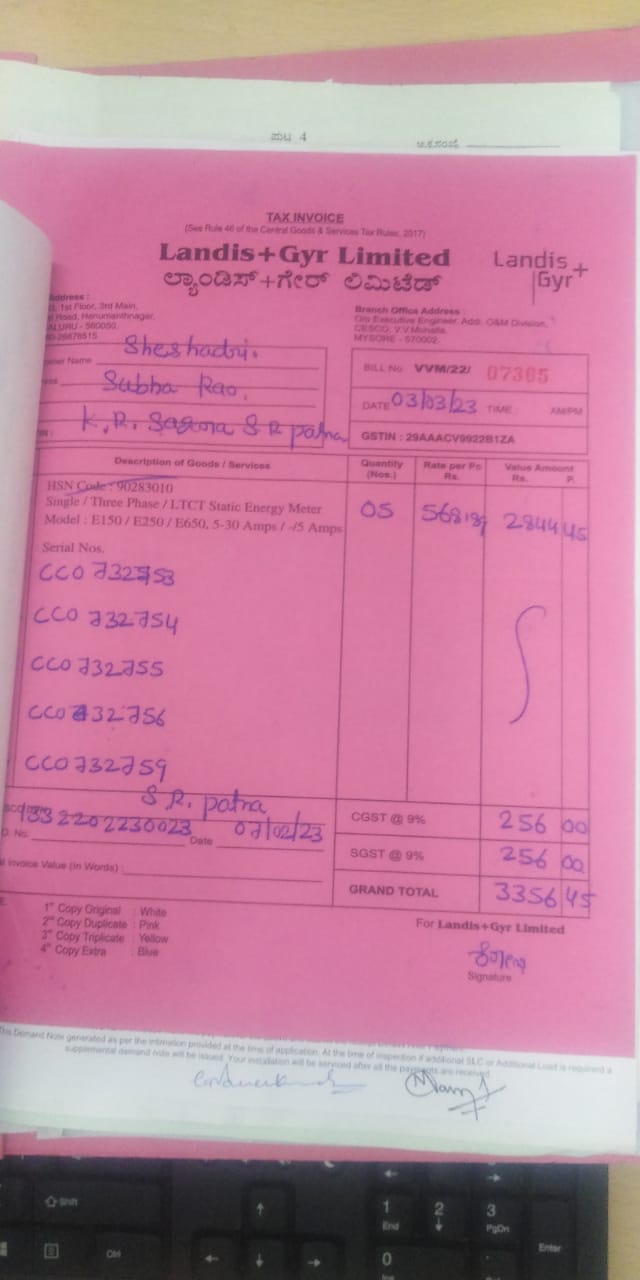 ಪುಟ 4
TAX INVOICE
(See Rule 46 of the Central Goods & Services Tax Rules, 2017)
Landis+Gyr Limited
ಲ್ಯಾಂಡಿಸ್+ಗೇರ್ ಲಿಮಿಟೆಡ್
Landis+Gyr+
Address :
1st Floor, 3rd Main,
Road, Hanumanthnagar,
ALURU - 560050.
26678515
Branch Office Address :
O/o Executive Engineer, Addl. O&M Division,
CESCO, V.V.Mohalla,
MYSORE - 570002.
Name Sheshadri.
Subha Rao,
K.R. Sagora S R patna
BILL No. VVM/22/ 07365
DATE 03/03/23 TIME : AM/PM
GSTIN : 29AAACV9922B1ZA
Description of Goods / Services
Quantity (Nos.)
Rate per Pc Rs.
Value Amount Rs. P.
HSN Code : 90283010
Single / Three Phase / LTCT Static Energy Meter
Model : E150 / E250 / E650, 5-30 Amps / -/5 Amps
05 568.89 2844 45
Serial Nos.
CCO 732753
CCO 732754
CCO 732755
CCO 732756
CCO 732759
S R. patna
1332202230023 Date 07/02/23
O. No.
Invoice Value (In Words) :
CGST @ 9% 256 00
SGST @ 9% 256 00
GRAND TOTAL 3356 45
1st Copy Original : White
2nd Copy Duplicate : Pink
3rd Copy Triplicate : Yellow
4th Copy Extra : Blue
For Landis+Gyr Limited
Signature
This Demand Note generated as per the intimation provided at the time of application. At the time of inspection if additional SLC or Additional Load is required a
supplemental demand note will be issued. Your installation will be serviced after all the payments are received
Shift
Ctrl
1 End
2
3 PgDn
Enter
0